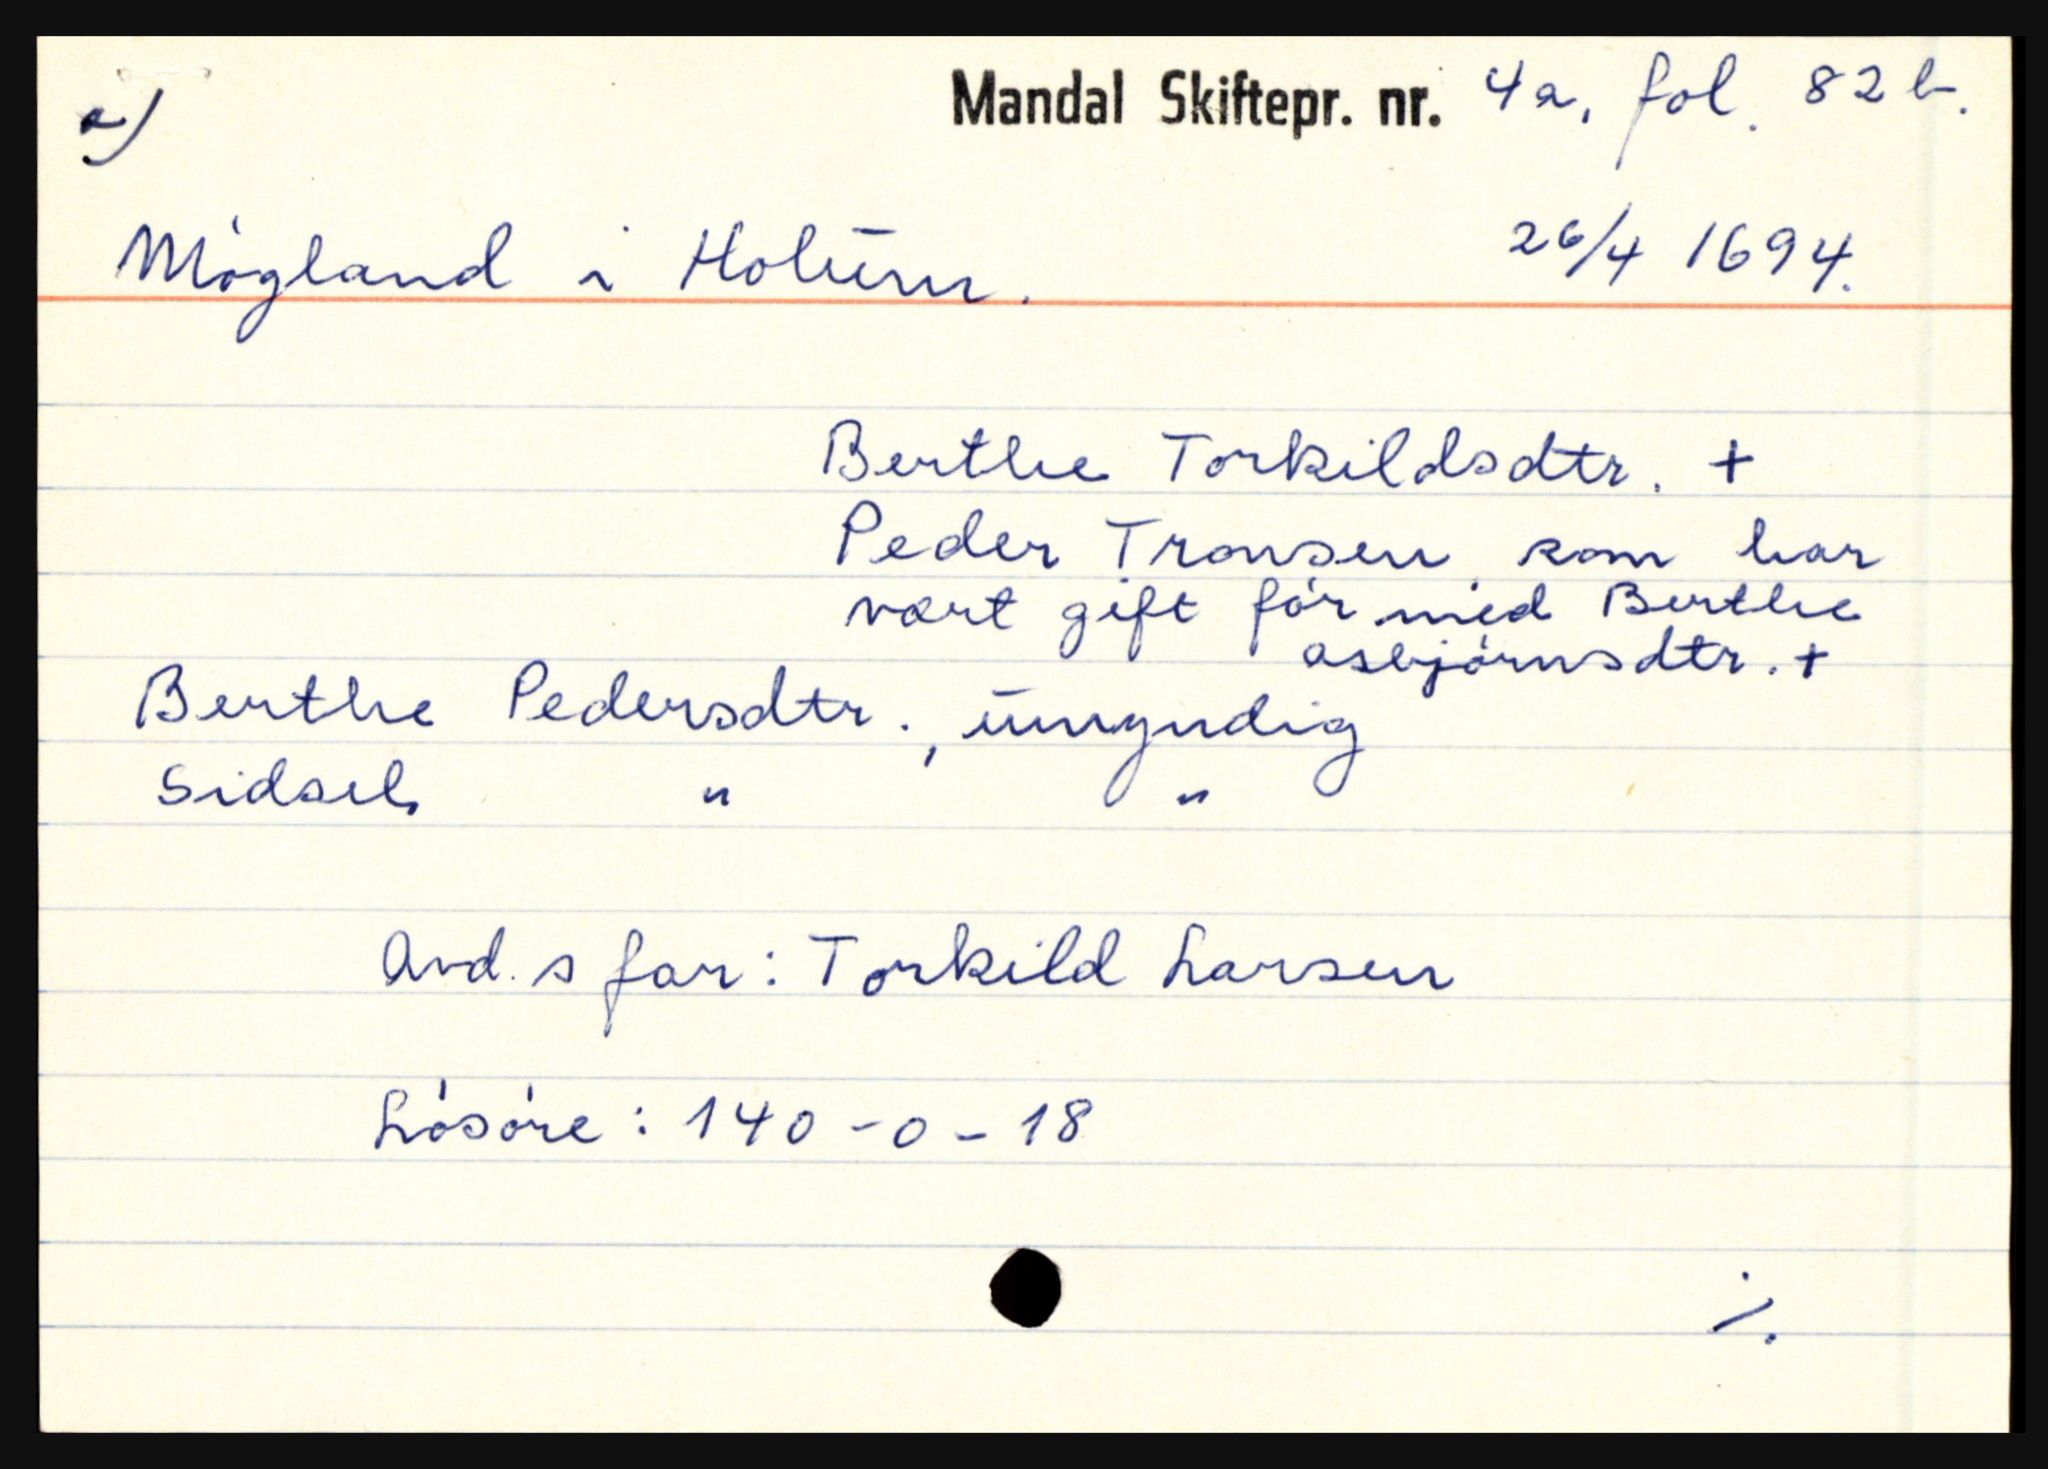 a)
Mandal Skiftepr. nr. 4a, fol. 82 b.
Mógland i Holum.
26/4 1694.
Berthe Torkildsdtr. +
Peder Tronsen som har
vært gift fór med Berthe
asbjórnsdtr. +
Berthe Pedersdtr., umyndig
Sidsel " "
Avd. s far: Torkild Larsen
Lósóre: 140-0-18
./.